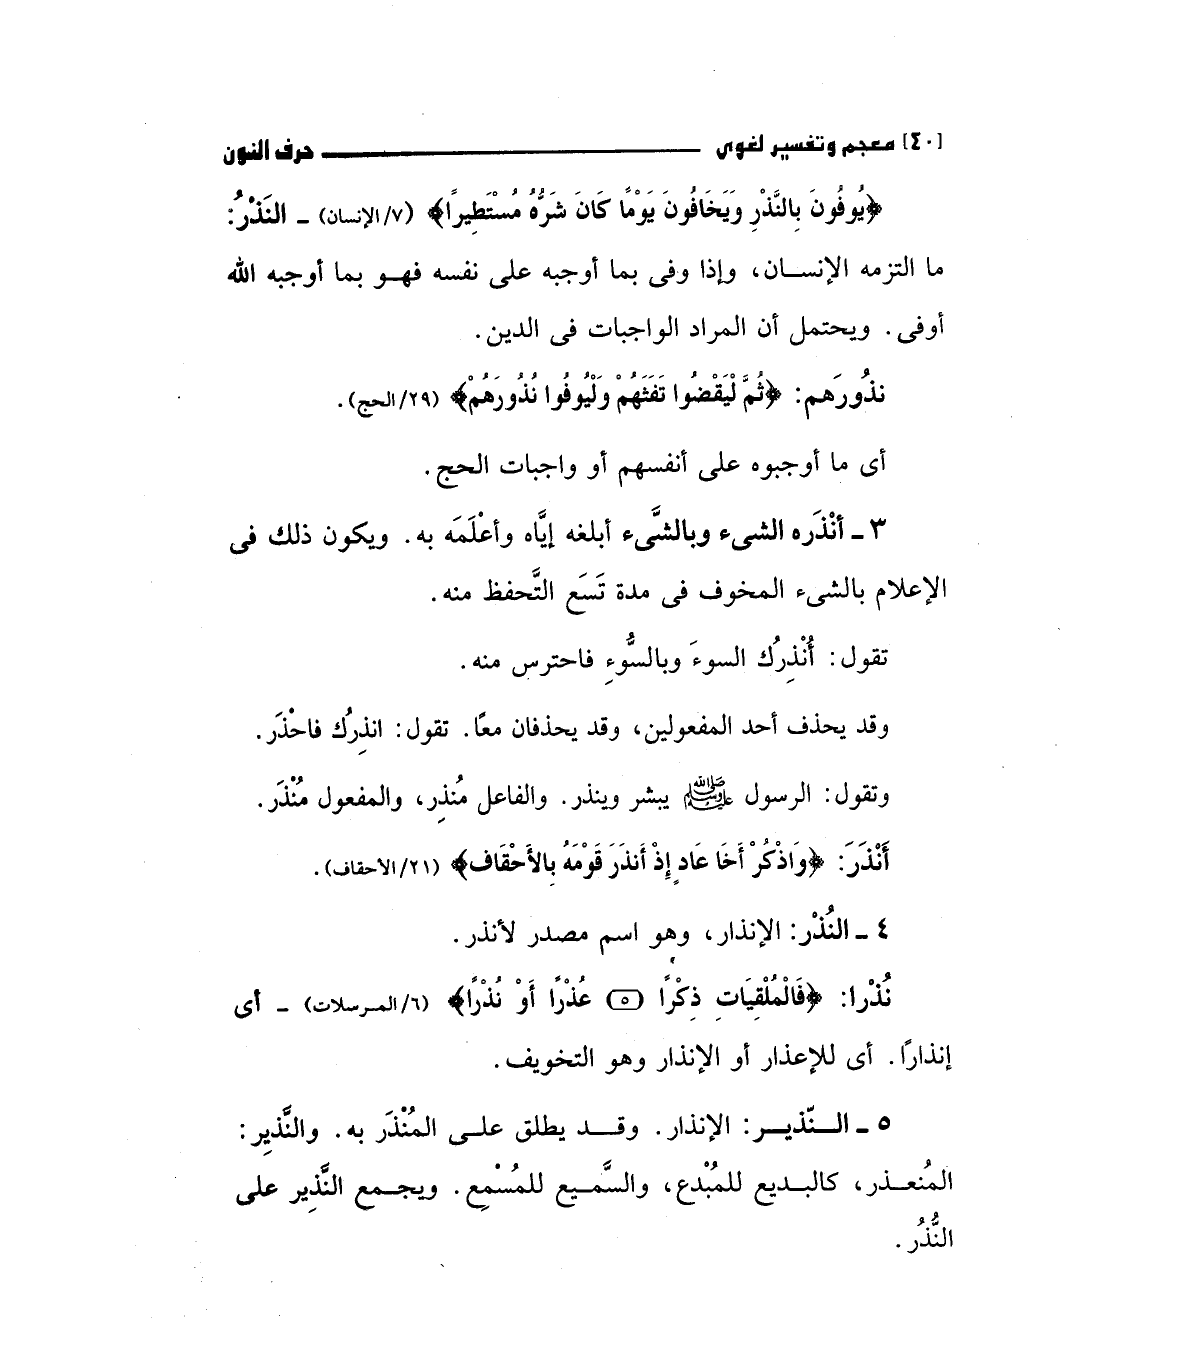 [٤٠] معجم وتفسير لغوى حرف النون
﴿يُوفُونَ بِالنَّذْرِ وَيَخَافُونَ يَوْمًا كَانَ شَرُّهُ مُسْتَطِيرًا﴾ (٧/الإنسان) ـ النَذْرُ:
ما التزمه الإنسـان، وإذا وفى بما أوجبه على نفسه فهـو بما أوجبه الله
أوفى. ويحتمل أن المراد الواجبات فى الدين.
نذُورَهم: ﴿ثُمَّ لْيَقْضُوا تَفَثَهُمْ وَلْيُوفُوا نُذُورَهُمْ﴾ (٢٩/الحج).
أى ما أوجبوه على أنفسهم أو واجبات الحج.
٣ ـ أنْذَره الشىء وبالشَّىء أبلغه إيَّاه وأعْلَمَه به. ويكون ذلك فى
الإعلام بالشىء المخوف فى مدة تَسَع التَّحفظ منه.
تقول: أُنْذِرُك السوءَ وبالسُّوءِ فاحترس منه.
وقد يحذف أحد المفعولين، وقد يحذفان معًا. تقول: انذِرُك فاحْذَر.
وتقول: الرسول ﷺ يبشر وينذر. والفاعل مُنذِر، والمفعول مُنْذَر.
أَنْذَرَ: ﴿وَاذْكُرْ أَخَا عَادٍ إِذْ أَنذَرَ قَوْمَهُ بِالأَحْقَاف﴾ (٢١/الاحقاف).
٤ ـ النُذْر: الإنذار، وهو اسم مصدر لأنذر.
نُذْرا: ﴿فَالْمُلْقِيَاتِ ذِكْرًا (٥) عُذْرًا أَوْ نُذْرًا﴾ (٦/المـرسلات) ـ أى
إنذارًا. أى للإعذار أو الإنذار وهو التخويف.
٥ ـ الـنّذيـر: الإنذار. وقـد يطلق علـى المُنْذَر به. والنَّذِير:
المُنعـذر، كالبـديع للمُبْدع، والسَّمـيع للمُسْمِع. ويجـمع النَّذِير على
النُّذُر.